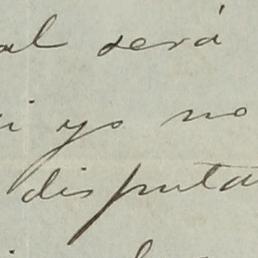 al será
si yo no
disputa